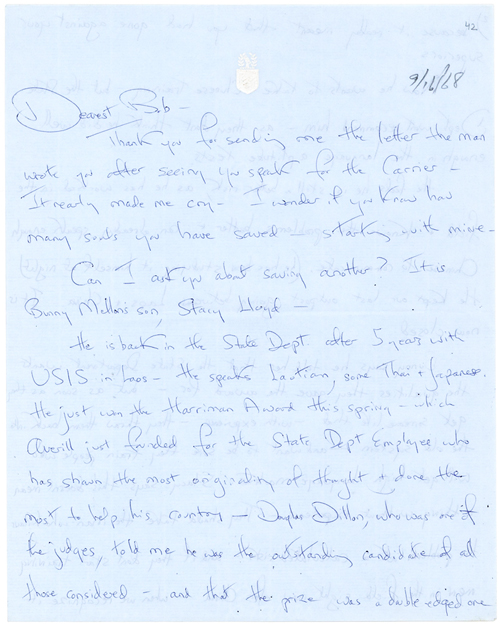 42
9/16/68
Dearest Bob –
Thank you for sending me the letter the man
wrote you after seeing you speak for the Carrier –
It really made me cry – I wonder if you know how
many souls you have saved – starting with mine –
Can I ask you about saving another? It is
Bunny Mellons son, Stacy Lloyd –
He is back in the State Dept after 5 years with
USIS in Laos – He speaks Laotian, some Thai + Japanese.
He just won the Harriman Award this spring – which
Averill just founded for the State Dept Employee who
has shown the most originality of thought & done the
most to help his country – Douglas Dillon, who was one of
the judges told me he was the outstanding candidate of all
those considered – and that the prize was a double edged one